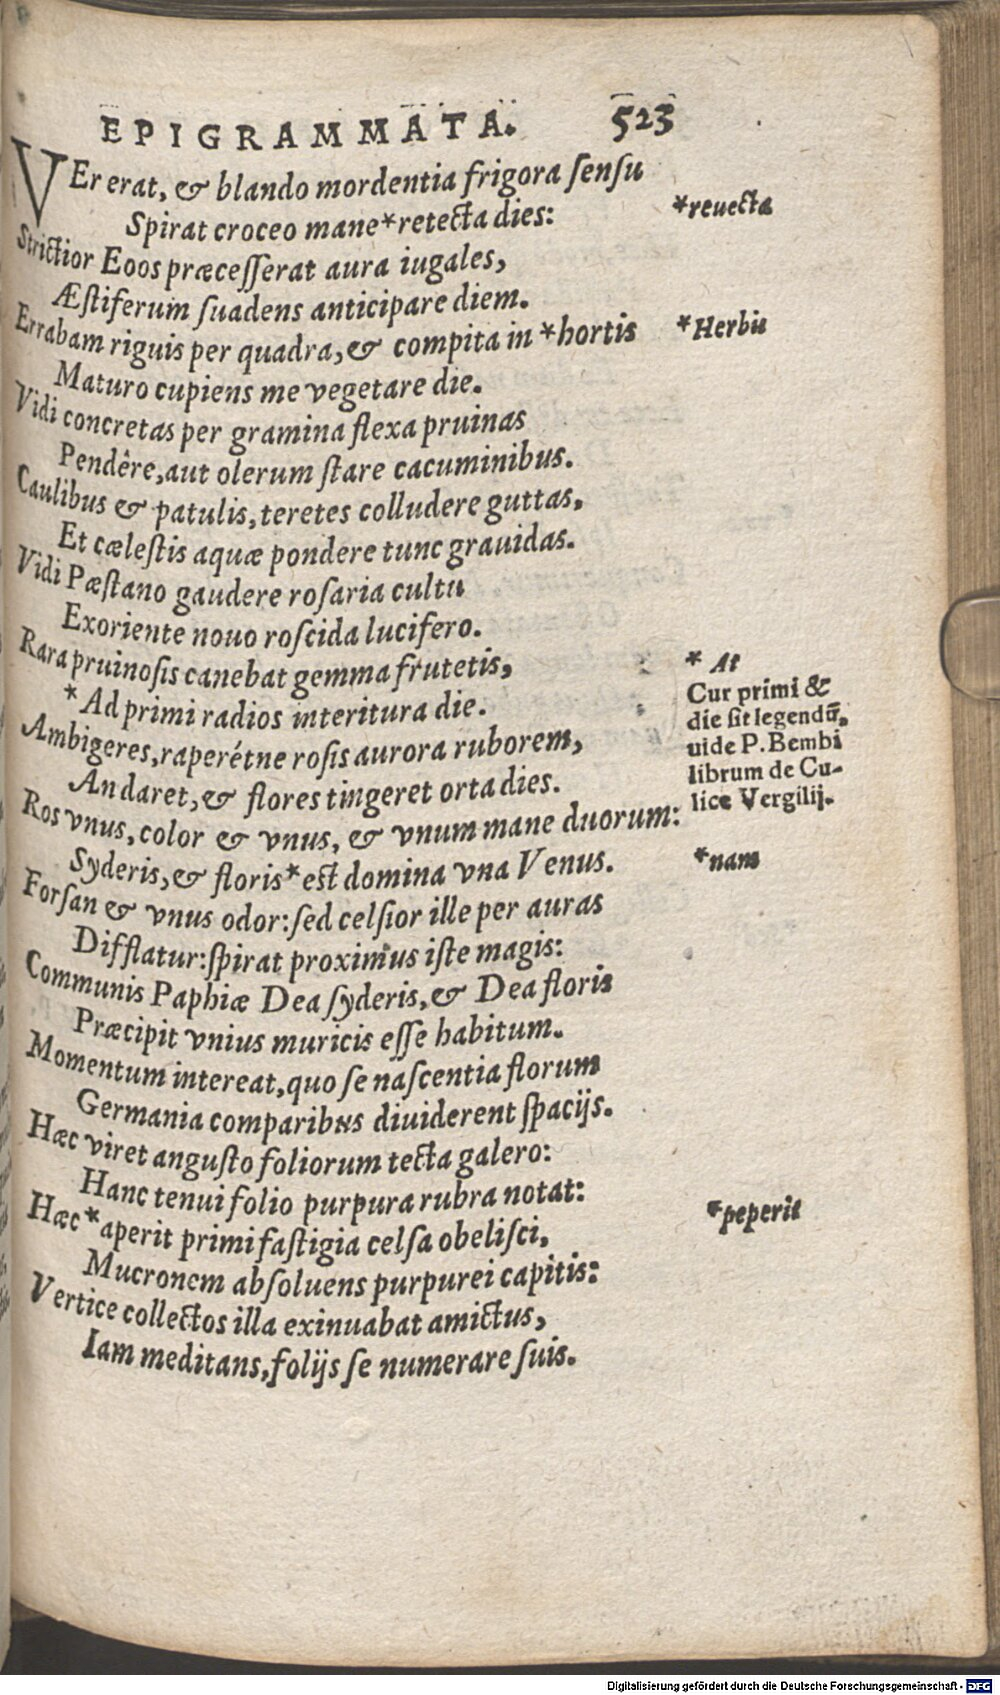 EPIGRAMMATA. 523
VEr erat, & blando mordentia frigora sensu
Spirat croceo mane*retecta dies:
*reuecta
Strictior Eoos præcesserat aura iugales,
Æstiferum suadens anticipare diem.
Errabam riguis per quadra, & compita in *hortis
*Herbis
Maturo cupiens me vegetare die.
Vidi concretas per gramina flexa pruinas
Pendêre, aut olerum stare cacuminibus.
Caulibus & patulis, teretes colludere guttas,
Et cælestis aquæ pondere tunc grauidas.
Vidi Pæstano gaudere rosaria cultu
Exoriente nouo roscida lucifero.
Rara pruinosis canebat gemma frutetis,
* At
*Ad primi radios interitura die.
Cur primi &
die sit legendū,
uide P. Bembi
librum de Cu-
lice Vergilij.
Ambigeres, raperétne rosis aurora ruborem,
An daret, & flores tingeret orta dies.
Ros vnus, color & vnus, & vnum mane duorum:
Syderis, & floris*est domina vna Venus.
*nam
Forsan & vnus odor: sed celsior ille per auras
Difflatur: spirat proximus iste magis:
Communis Paphiæ Dea syderis, & Dea floris
Præcipit vnius muricis esse habitum.
Momentum intereat, quo se nascentia florum
Germania comparibus diuiderent spacijs.
Hæc viret angusto foliorum tecta galero:
Hanc tenui folio purpura rubra notat:
Hæc *aperit primi fastigia celsa obelisci,
*peperit
Mucronem absoluens purpurei capitis:
Vertice collectos illa exinuabat amictus,
Iam meditans, folijs se numerare suis.
Digitalisierung gefördert durch die Deutsche Forschungsgemeinschaft - DFG